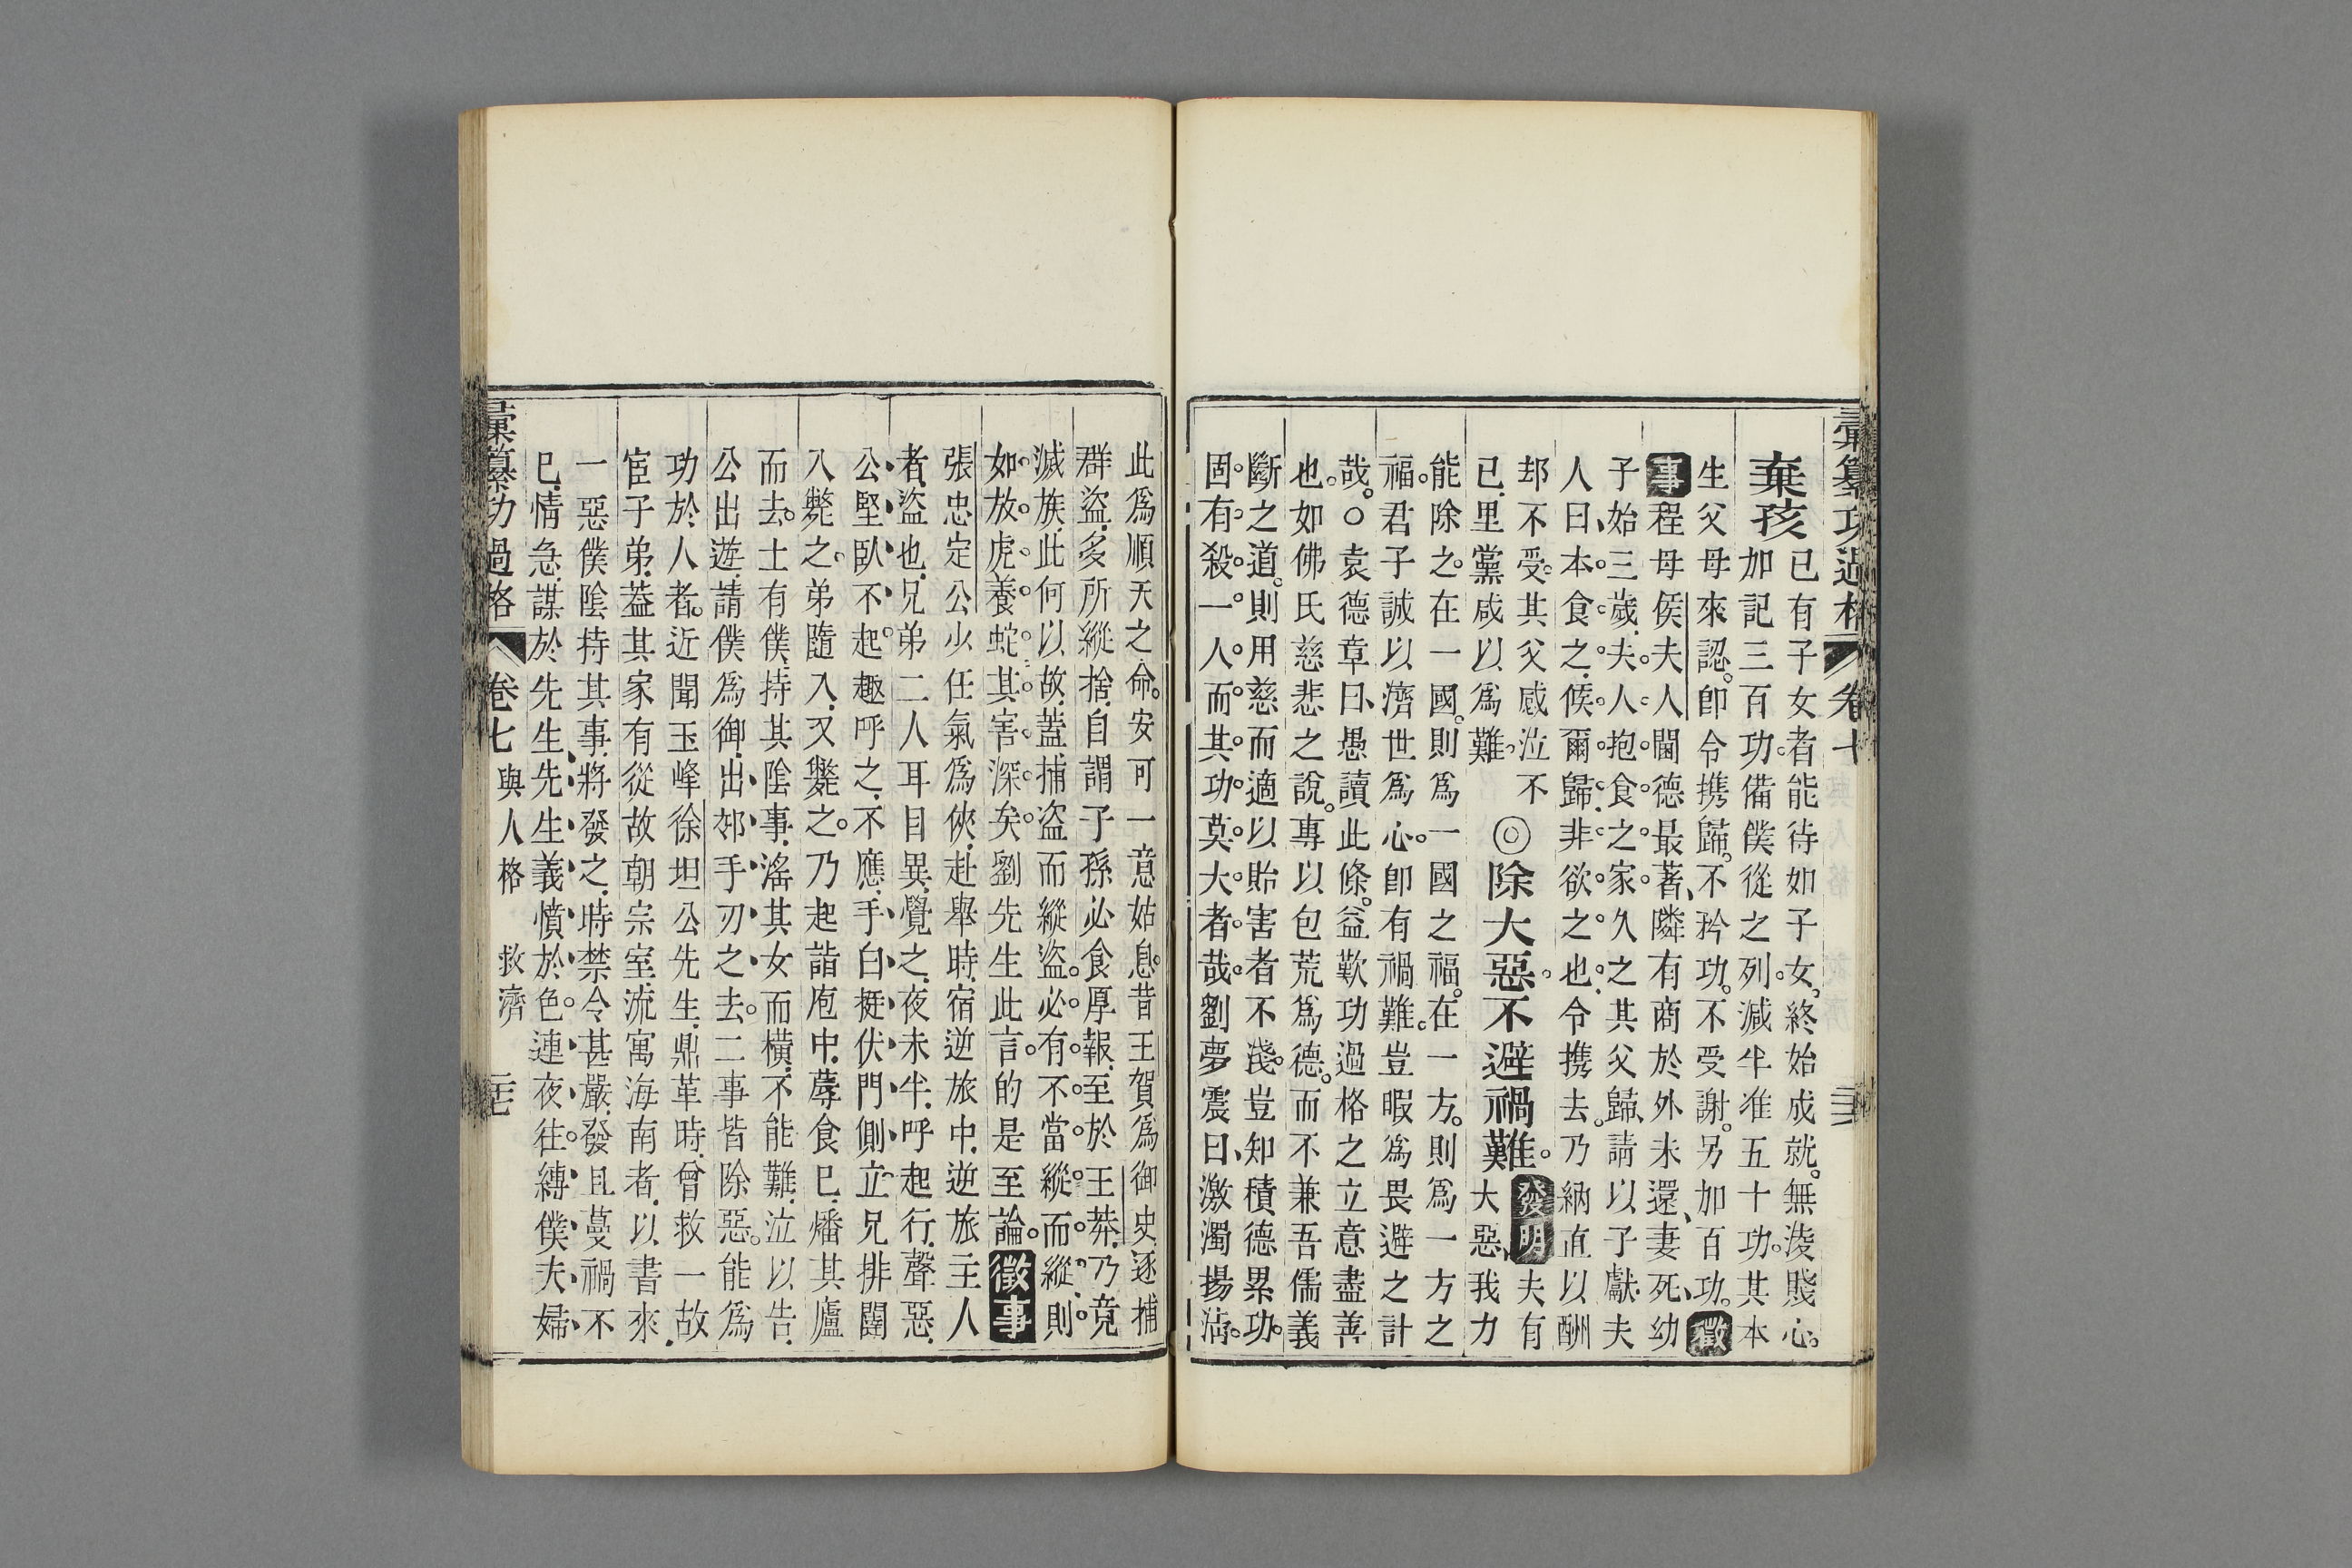 彙纂功過格 卷七
棄孩
已有子女者能待如子女。終始成就。無淩賤心。
加記三百功。備僕從之列。減半准五十功。其本
生父母來認。卽令携歸。不矜功。不受謝。另加百功。徵
事程母侯夫人閫德最著、隣有商於外未還、妻死、幼
子始三歲、夫人抱食之。家久之其父歸、請以子獻、夫
人曰、本食之、候爾歸、非欲之也、令携去。乃納直以酬
却不受。其父感泣不
已、里黨咸以爲難。
◎除大惡。不避禍難。發明
夫有
大惡、我力
能除之。在一國。則爲一國之福。在一方。則爲一方之
福。君子誠以濟世爲心。卽有禍難。豈暇爲畏避之計
哉。○袁德章曰、愚讀此條。益歎功過格之立意盡善
也。如佛氏慈悲之說。專以包荒爲德。而不兼吾儒義
斷之道。則用慈而適以貽害者不淺。豈知積德累功。
固有殺一人。而其功莫大者哉。劉夢震曰、激濁揚淸。
此爲順天之命。安可一意姑息。昔王賀爲御史、逐捕
群盜、多所縱捨、自謂子孫必食厚報、至於王莽、乃竟
滅族、此何以故、蓋捕盜而縱盜。必有不當縱而縱、則
如放虎養蛇。其害深矣。劉先生此言。的是至論。徵事
張忠定公少任氣爲俠、赴舉時、宿逆旅中、逆旅主人
者、盜也、兄弟二人耳目異、覺之、夜未半、呼起行、聲惡、
公堅臥不起。趣呼之、不應、手白挺伏門側立兄排闥
入斃之。弟隨入、又斃之。乃起詣庖中、蓐食已、燔其廬
而去。士有僕、持其陰事、滛其女而橫、不能難、泣以告、
公出遊、請僕爲御、出郊手刃之去。二事皆除惡。能爲
功於人者。近聞玉峰徐坦公先生、鼎革時、曾救一故
宦子弟、蓋其家有從故朝宗室、流寓海南者、以書來、
一惡僕陰持其事、將發之、時禁令甚嚴、發且蔓禍不
已、情急、謀於先生、先生義憤於色。連夜往、縛僕夫婦
彙纂功過格 卷七 與人格 救濟